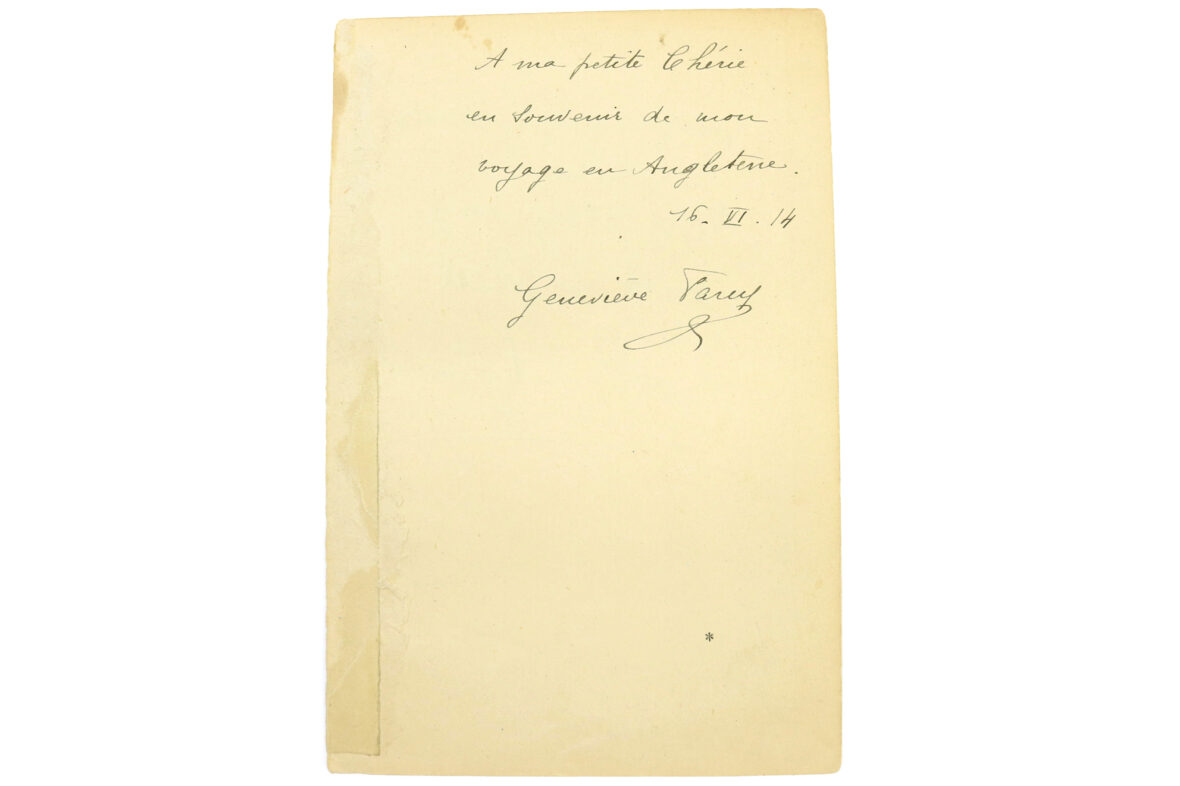 A ma petite Chérie
en Souvenir de mon
voyage en Angleterre.
16. VI. 14
Geneviève
*